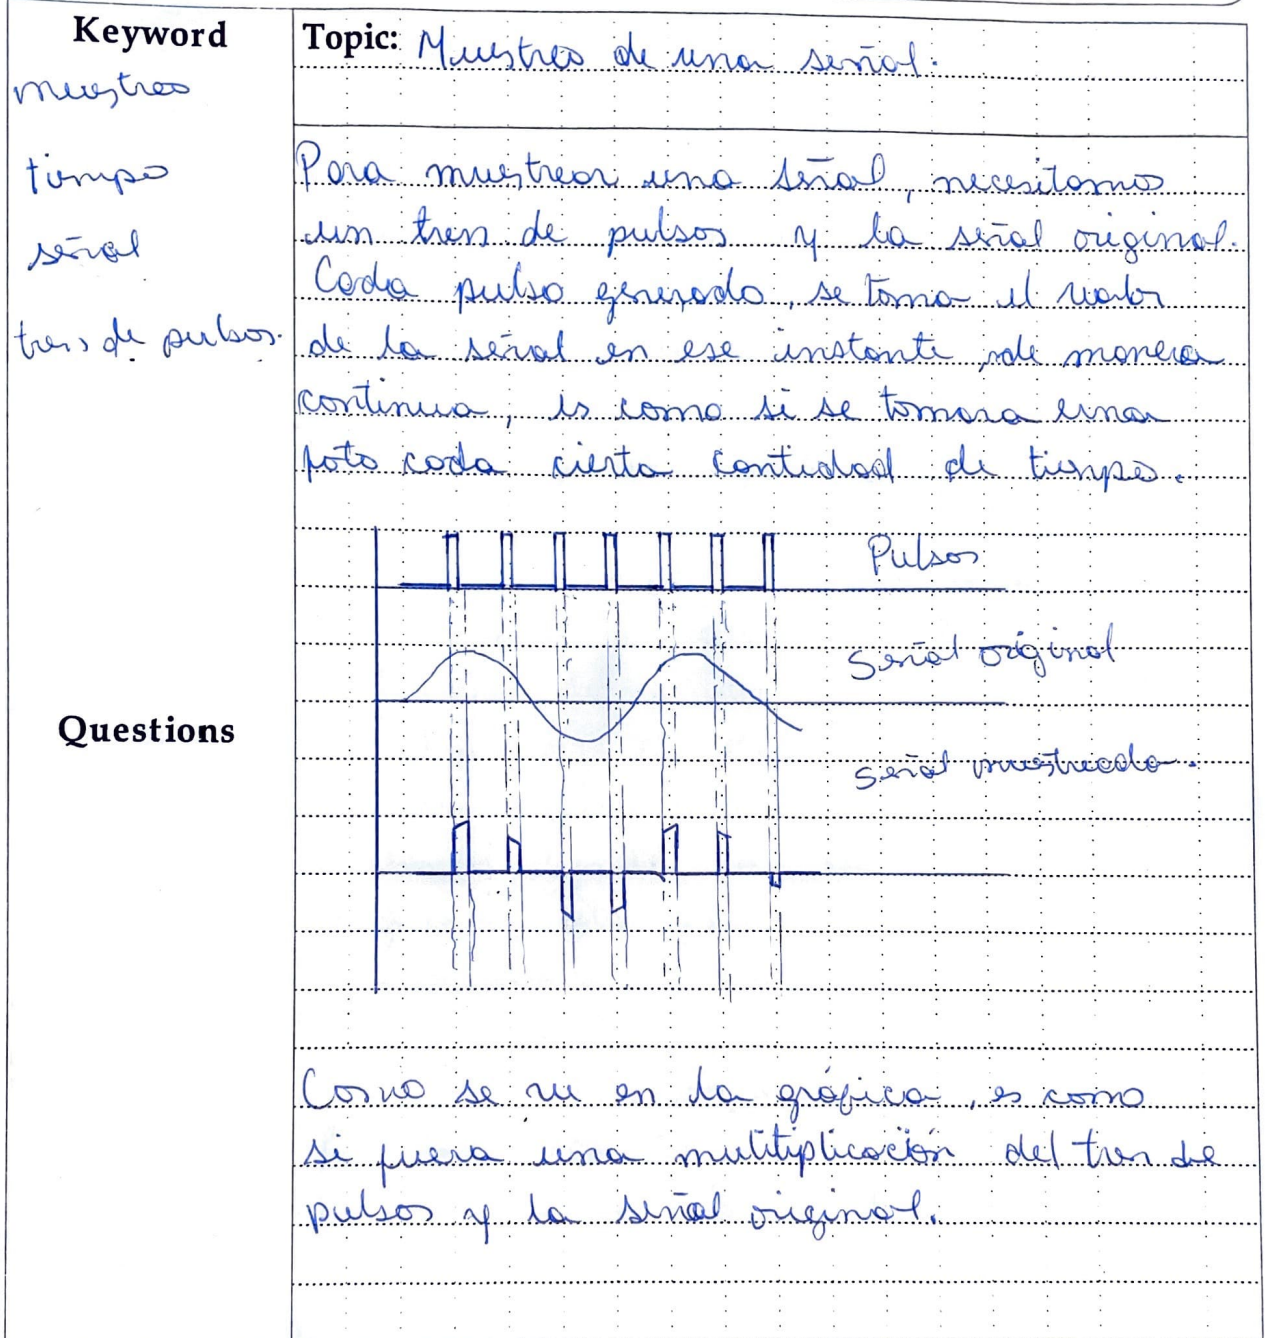 Keyword
muestreo
tiempo
señal
tren de pulsos.
Topic: Muestreo de una señal.
Para muestrear una señal, necesitamos
un tren de pulsos y la señal original.
Cada pulso generado, se toma el valor
de la señal en ese instante, de manera
continua, es como si se tomara una
foto cada cierta cantidad de tiempo.
Pulsos
Señal original
Señal muestreada.
Questions
Como se ve en la gráfica, es como
si fuera una multitiplicación del tren de
pulsos y la señal original.